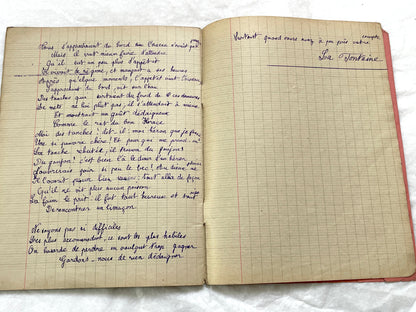 Nous s'approchaient du bord son l'oiseau n'avait qu'à prendre
Mais il crut mieux faire d'attendre
Qu'il eut un peu plus d'appétit
Il vivait de régime, et mangeait à ses heures
Après quelques moments, l'appétit vint l'oiseau
S'approchant du bord, vit sur l'eau
Des tanches qui sortaient du fond de ces demeures
Le mets ne lui plut pas, il s'attendait à mieux
Et montrait un goût dédaigneux
Comme le rat du bon Horace
Moi des tanches! dit-il, moi héron que je fasse
Une si pauvre chère! Et pour qui me prend-on?
La tanche rebutée, il trouva du goujon
Du goujon! c'est bien là le dîner d'un héron
J'ouvrirais pour si peu le bec! Aux dieux ne plaise
Il l'ouvrit pour bien moins: tout alla de façon
Qu'il ne vit plus aucun poisson
La faim le prit: il fut tout heureux et tout aise
De rencontrer un limaçon
Ne soyons pas si difficiles
Les plus accommodant, ce sont les plus habiles
On hasarde de perdre en voulant trop gagner
Gardons-nous de rien dédaigner
Surtout quand vous avez à peu près votre compte
La Fontaine